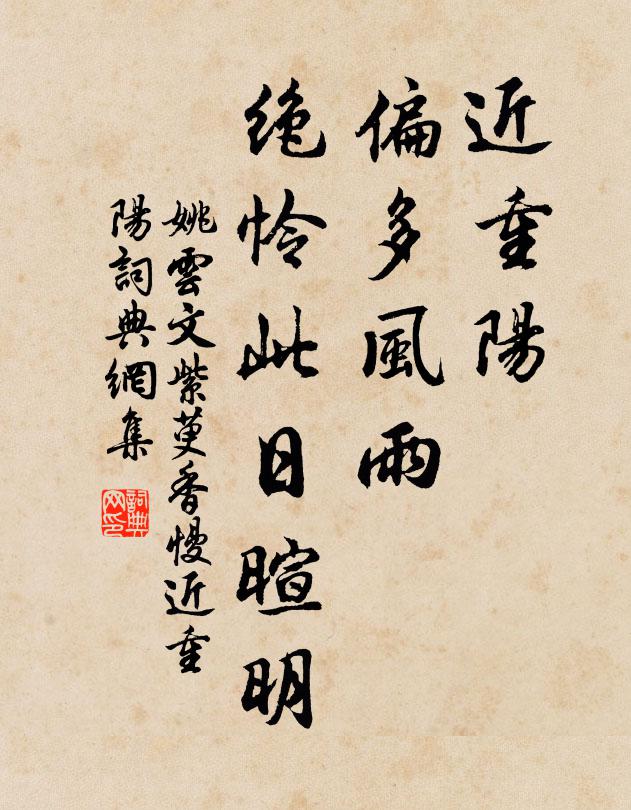 近重陽
偏多風雨
绝怜此日暄明
姚雲文紫萸香慢近重
陽詞典網集
詞典网印